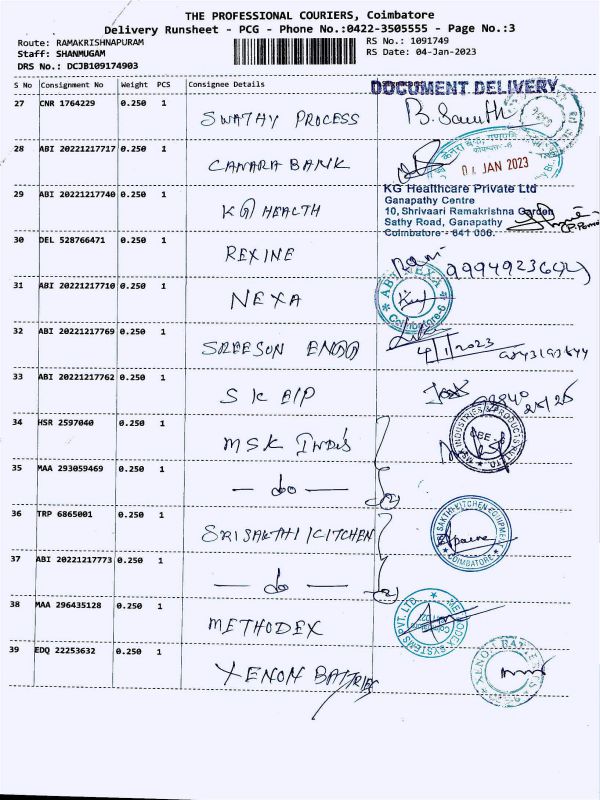 THE PROFESSIONAL COURIERS, Coimbatore
Delivery Runsheet - PCG - Phone No.:0422-3505555 - Page No.:3
Route: RAMAKRISHNAPURAM
RS No.: 1091749
Staff: SHANMUGAM
RS Date: 04-Jan-2023
DRS No.: DCJB109174903
S No Consignment No Weight PCS Consignee Details
DOCUMENT DELIVERY
27 CNR 1764229 0.250 1 SWATHY PROCESS
28 ABI 20221217717 0.250 1 CANARA BANK
JAN 2023
29 ABI 20221217740 0.250 1 KG HEALTH
KG Healthcare Private Ltd
Ganapathy Centre
10, Shrivaari Ramakrishna Garden
Sathy Road, Ganapathy
Coimbatore - 641 006.
30 DEL 528766471 0.250 1 REXINE
31 ABI 20221217710 0.250 1 NEXA
Coimbatore-6
32 ABI 20221217769 0.250 1 SREESUN
4/1/2023
33 ABI 20221217762 0.250 1 S K E/P
34 HSR 2597040 0.250 1 MSK
35 MAA 293059469 0.250 1 - do -
36 TRP 6865001 0.250 1 SRI SAKTHI KITCHEN
SAKTHI KITCHEN EQUIPMENT
COIMBATORE
37 ABI 20221217773 0.250 1 - do -
38 MAA 296435128 0.250 1 METHODEX
METHODEX SYSTEMS PVT. LTD.
39 EDQ 22253632 0.250 1 XENON BATTRIES